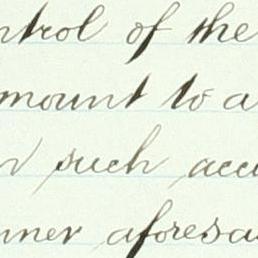 ntrol of the
mount to a
such acc
nner aforesa